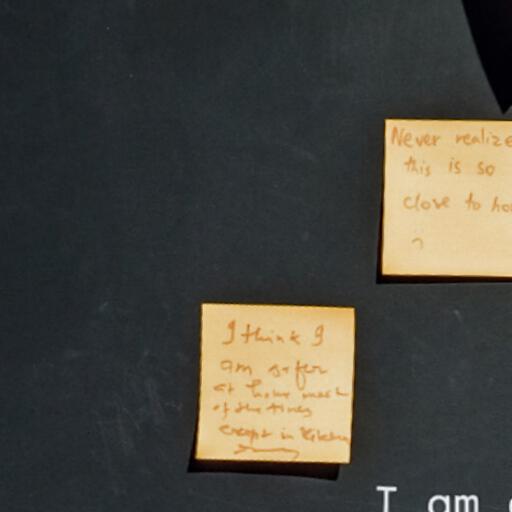 Never realize
this is so
close to ho
?
I think I
am safer
at home most
of the times
except in Kitchen
I am